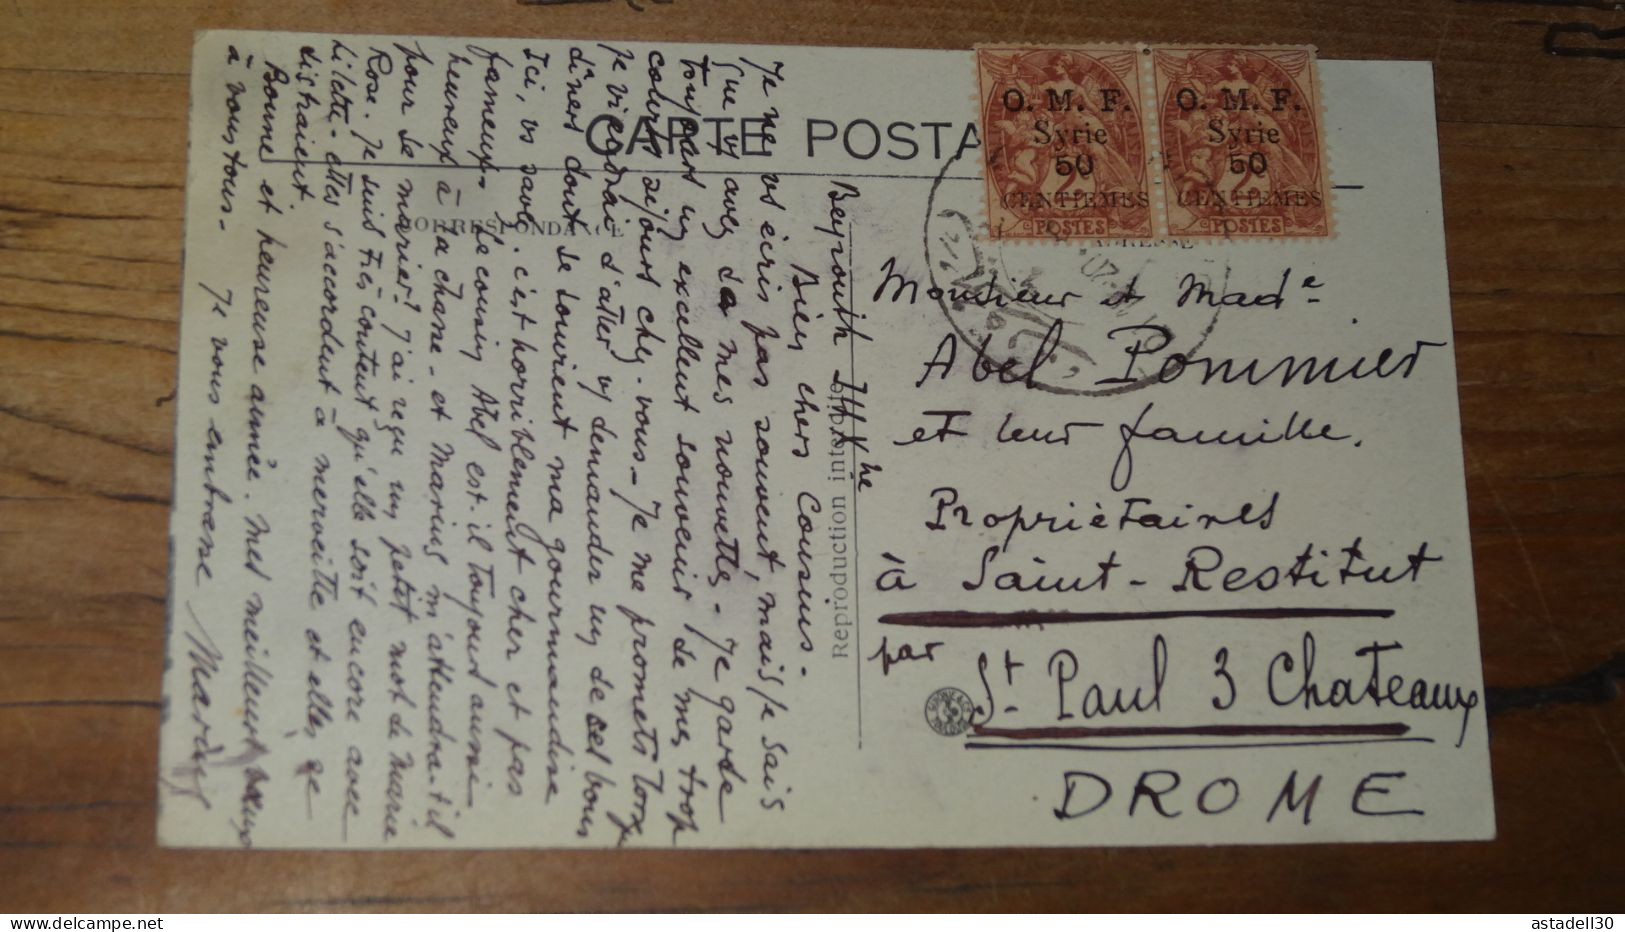 CARTE POSTA
CORRESPONDANCE
ADRESSE
O. M. F.
Syrie
50
2c
CENTIEMES
POSTES
O. M. F.
Syrie
50
2c
CENTIEMES
POSTES
Beyrouth
Bien chers Cousins.
Je ne vs écris pas souvent, mais je sais
que vs avez de mes nouvelles. Je garde
toujours un excellent souvenir de mes trop
courts séjours chez vous. Je me promets long
Je viendrai d'aller vs demander un de ces bons
dîners dont se souvient ma gourmandise
Ici, vs savez, c'est horriblement cher et pas
fameux. Le cousin Abel est-il toujours aussi
heureux à la chasse. et Marius m'attendra-t-il
pour se marier? J'ai reçu un petit mot de Marie
Rose. Je suis très content qu'elle soit encore avec
Lilette. elles s'accordent à merveille et elles se
distraient.
Bonne et heureuse année. Mes meilleurs vœux
à vous tous. Je vous embrasse
Reproduction interdite
Monsieur et Made
Abel Pommier
et leur famille.
Propriétaires
à Saint-Restitut
par St Paul 3 Chateaux
DROME
astadell30